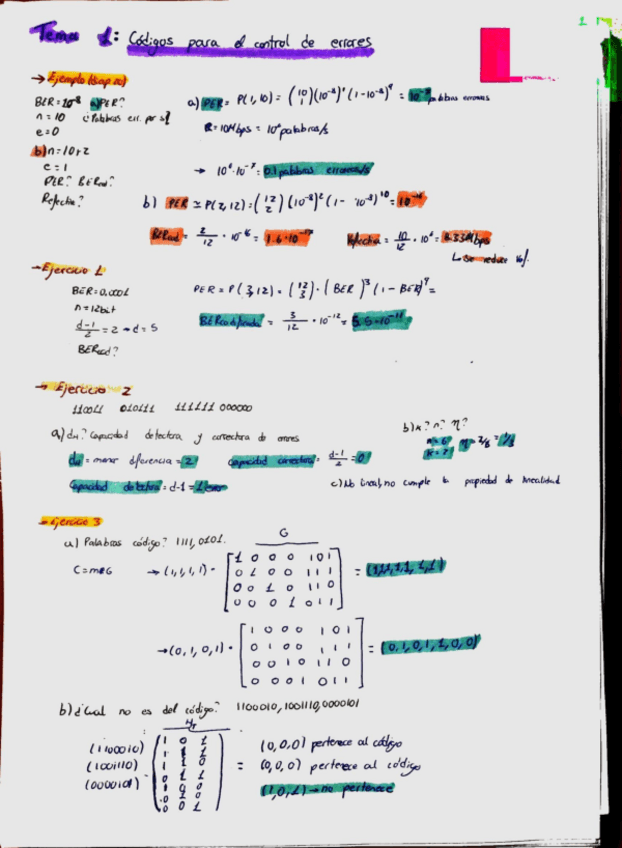 Tema 1: Códigos para el control de errores
→ Ejemplo
BER = 10⁻⁸ a) PER?
n = 10 ¿Palabras err. por s?
e = 0
a) PER = P(1, 10) = (10 1)(10⁻⁸)¹(1-10⁻⁸)⁹ = 10⁻⁷ palabras erroneas
R = 10Mbps = 10⁶ palabras/s
→ 10⁶·10⁻⁷ = 0.1 palabras erroneas/s
b) n = 10+2
e = 1
PER? BERcod?
Refectiva?
b) PER ≃ P(2, 12) = (12 2)(10⁻⁸)²(1- 10⁻⁸)¹⁰ =
BERcod = 2/12 · 10⁻¹⁶ =
Refectiva = 10/12 · 10⁶ = 8.33Mbps
↳ Se reduce 16%
→ Ejercicio 1
BER = 0,0001
n = 12bit
d-1/2 = 2 → d = 5
BERcod?
PER = P(3,12) = (12 3) · (BER)³(1 - BER)⁹ =
BERcodificada = 3/12 · 10⁻¹² =
→ Ejercicio 2
110011 010111 111111 000000
a) dm? Capacidad detectora y correctora de errores
dm = menor diferencia = 2
capacidad correctora = d-1/2 = 0
Capacidad detectora = d-1 = 1 error
b) k? n? η?
n = 6
k = 2
η = 2/6 = 1/3
c) No lineal, no cumple la propiedad de linealidad
→ Ejercicio 3
a) Palabras código? 1111, 0101.
G
C = m·G → (1,1,1,1) ·
1 0 0 0 1 0 1
0 1 0 0 1 1 1
0 0 1 0 1 1 0
0 0 0 1 0 1 1
= (1,1,1,1,1,1,1)
→ (0,1,0,1) ·
1 0 0 0 1 0 1
0 1 0 0 1 1 1
0 0 1 0 1 1 0
0 0 0 1 0 1 1
= (0,1,0,1,1,0,0)
b) ¿Cual no es del código? 1100010, 1001110, 0000101
Hᵀ
(1100010)
(1001110)
(0000101)
1 0 1
1 1 1
1 1 0
0 1 1
1 0 0
0 1 0
0 0 1
= (0,0,0) pertenece al código
(0,0,0) pertenece al código
(1,0,1) → no pertenece